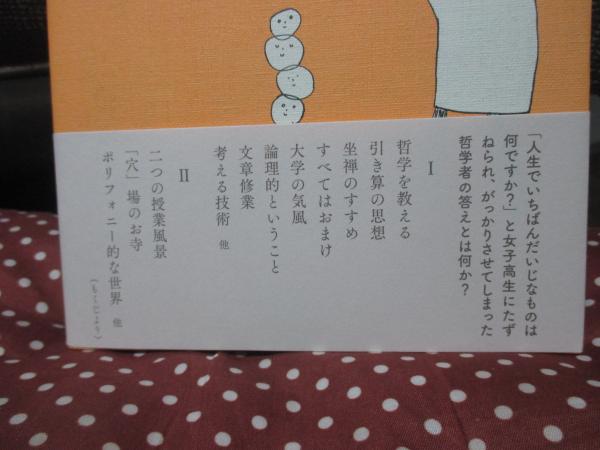 「人生でいちばんだいじなものは
何ですか?」と女子高生にたず
ねられ、がっかりさせてしまった
哲学者の答えとは何か?
Ⅰ
哲学を教える
引き算の思想
坐禅のすすめ
すべてはおまけ
大学の気風
論理的ということ
文章修業
考える技術 他
Ⅱ
二つの授業風景
「穴」場のお寺
ポリフォニー的な世界 他
(もくじより)